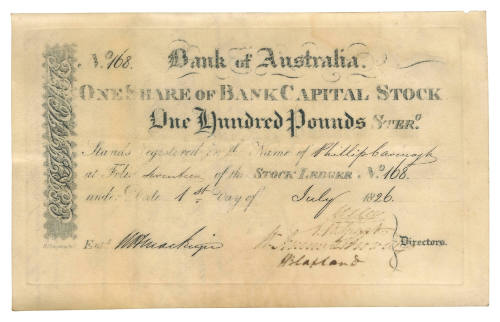 CERTIFICATE
No. 168.
Bank of Australia.
ONE SHARE OF BANK CAPITAL STOCK
One Hundred Pounds STERG.
Stands Registered in the Name of Phillip Cavenagh
at Folio Seventeen of the STOCK LEDGER No. 168.
under Date 1st Day of July 1826.
Entd. Mackenzie
Directors.
Blaxland